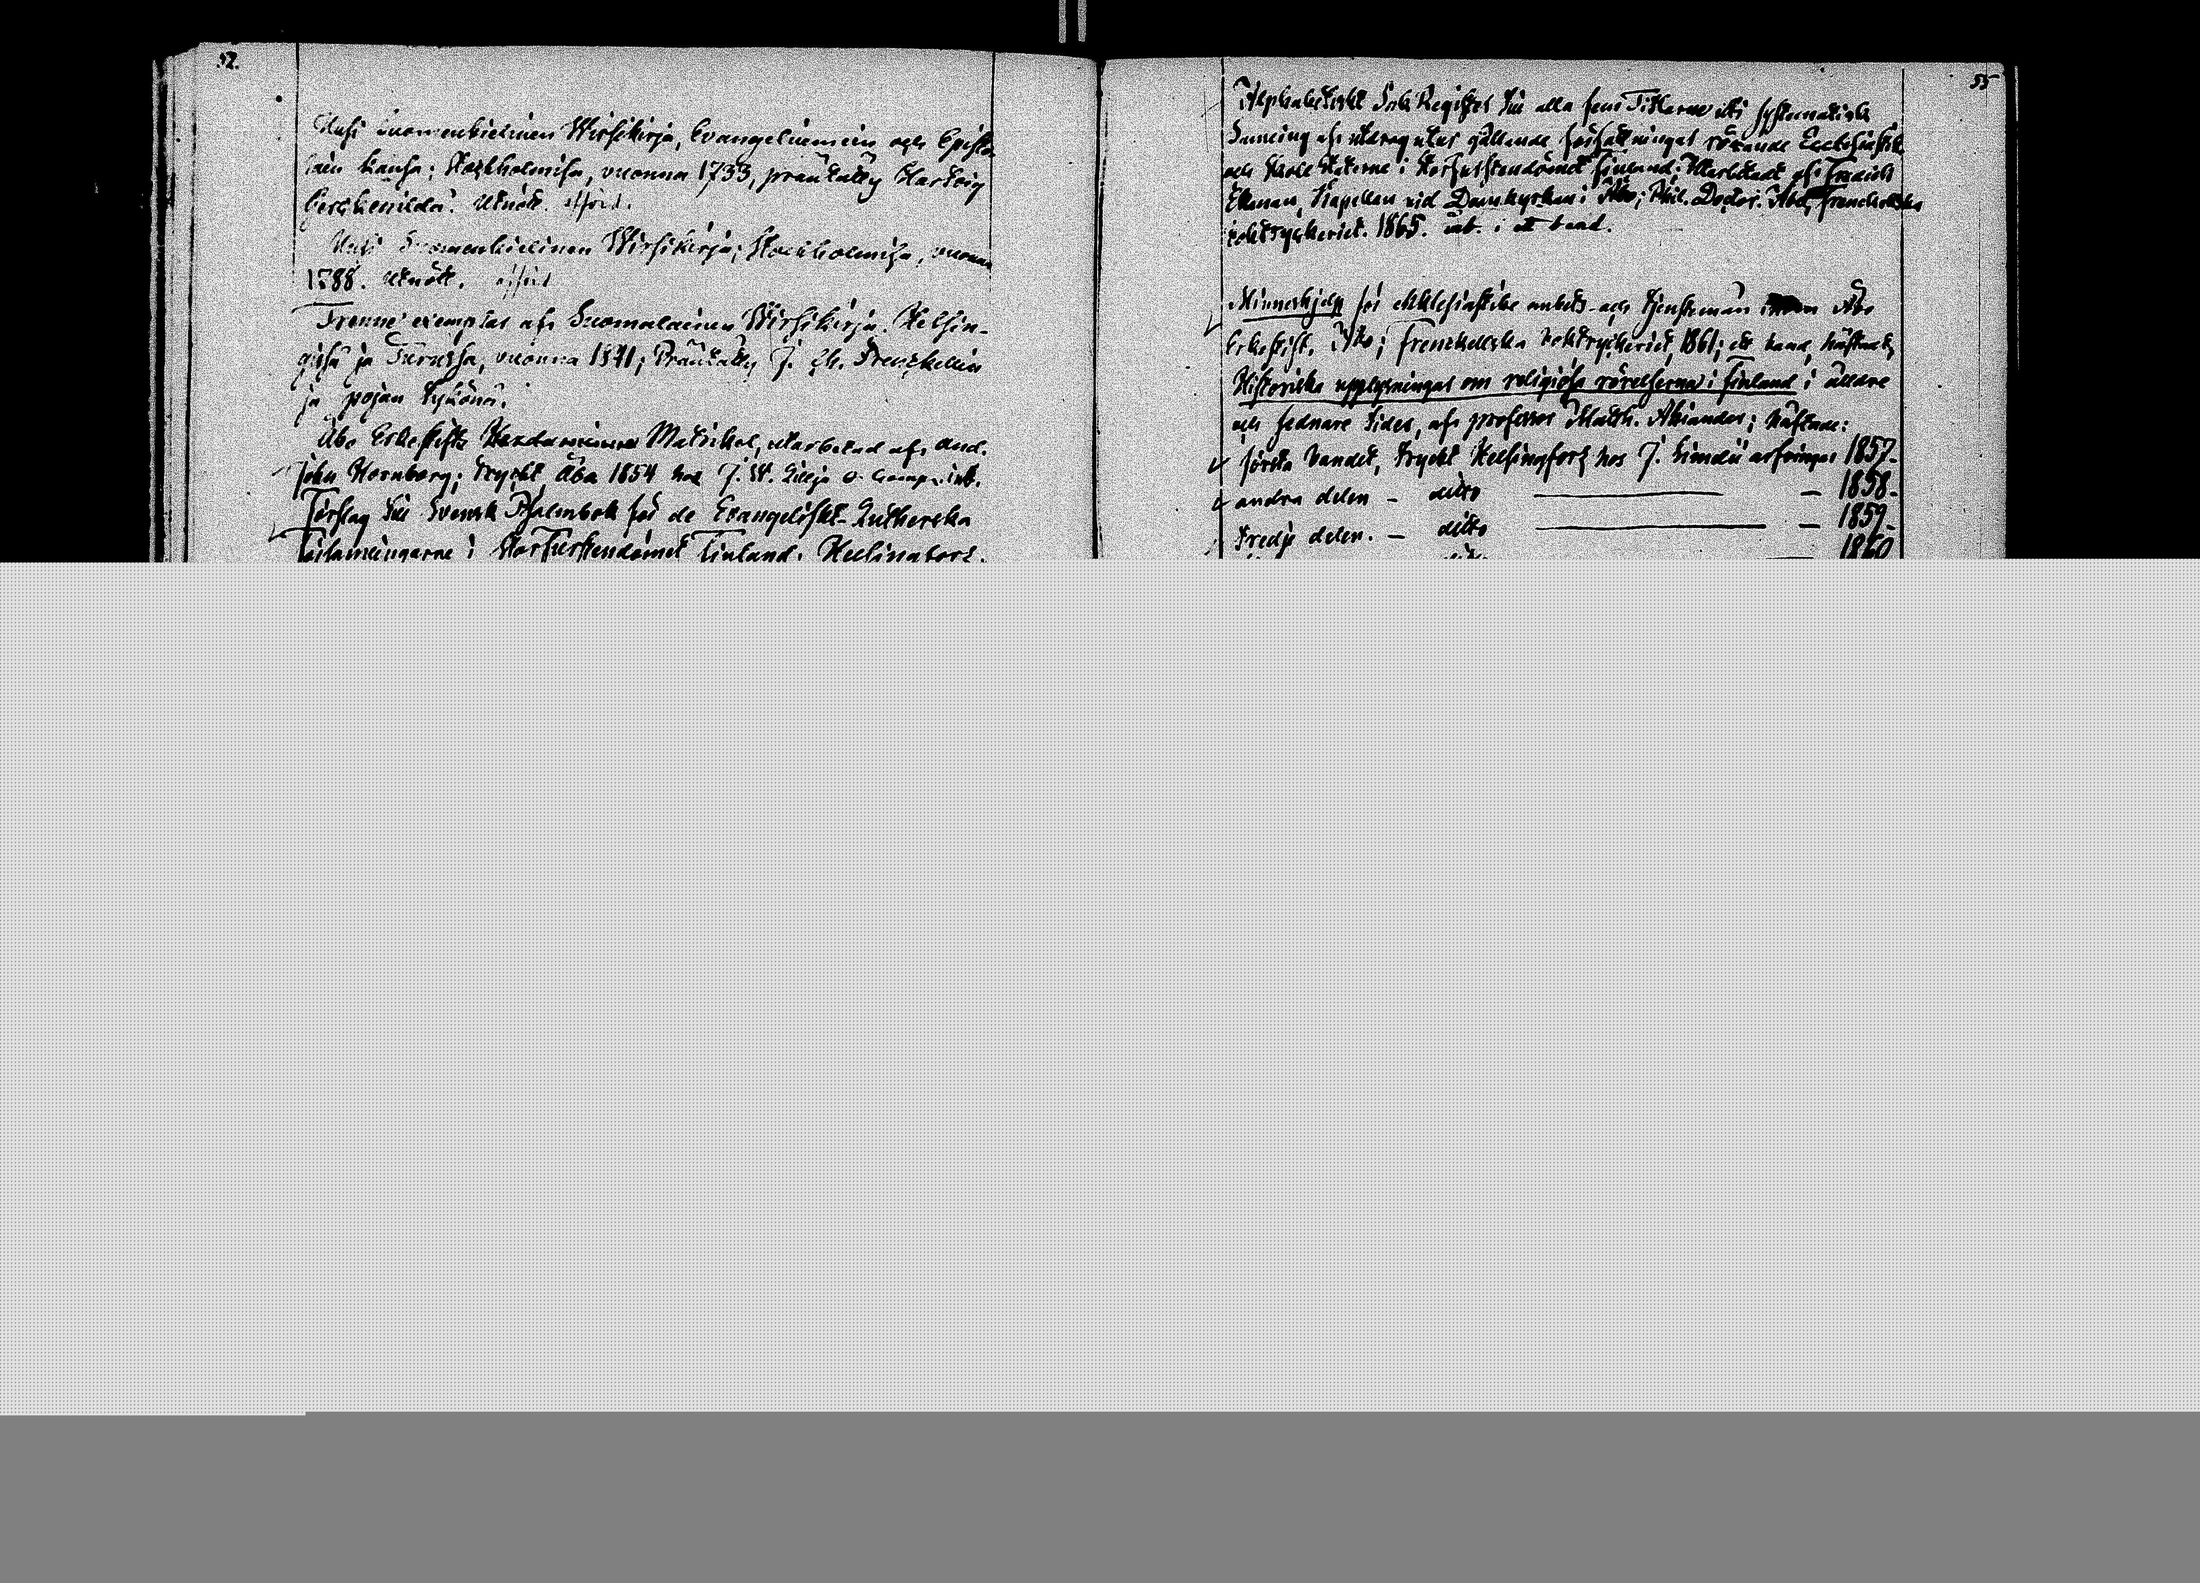 52.
Uusi Suomenkielinen Wirsikirja, Evangeliumein och Episto-
lain kansa; Stockholmisa, vuonna 1733, präntätty Hartwig
Gerckenildä. Utnött. afförd.
Uusi Suomenkielinen Wirsikirja; Stockholmisa, vuonna
1788. Utnött. afförd
Trenne exemplar af Suomalainen Wirsikirja. Helsin-
gisä ja Turussa, vuonna 1841; Präntätty J. Ch. Frenckellin
ja pojan tykönä.
Åbo Erkestifts Herdaminne Matrikel, utarbetad af And.
John Hornborg; tryckt Åbo 1854 hos J. W. Lillja & Comp. inb.
Förslag till Svensk Psalmbok för de Evangeliskt-Lutherska
församlingarne i StorFurstendömet Finland. Helsingfors.
55
Alphabetiskt Sak Register till alla fem Titlarne uti systematisk
Samling af utdrag utur gällande författningar rörande Ecclesiastik
och Skole Staterne i Storfurstendömet Finland; Utarbetadt af Fredrich
Ekman, Kapellan vid Domkyrkan i Åbo; Phil. Doctor. Åbo, Frenckellska
boktryckeriet. 1865. inb. i ett band.
Minneshjelp för ekklesiastike embets- och tjensteman inom Åbo
Erkestift. Åbo; Frenckellska boktryckeriet, 1861; ett band, häftadt;
Historiska upplysningar om religiösa rörelserna i Finland i äldre
och sednare tider, af professor Matth. Akiander; häftade:
första bandet, tryckt Helsingfors hos J. Simelii arfvingar 1857.
andra delen - ditto — 1858.
tredje delen. - ditto — 1859.
1860